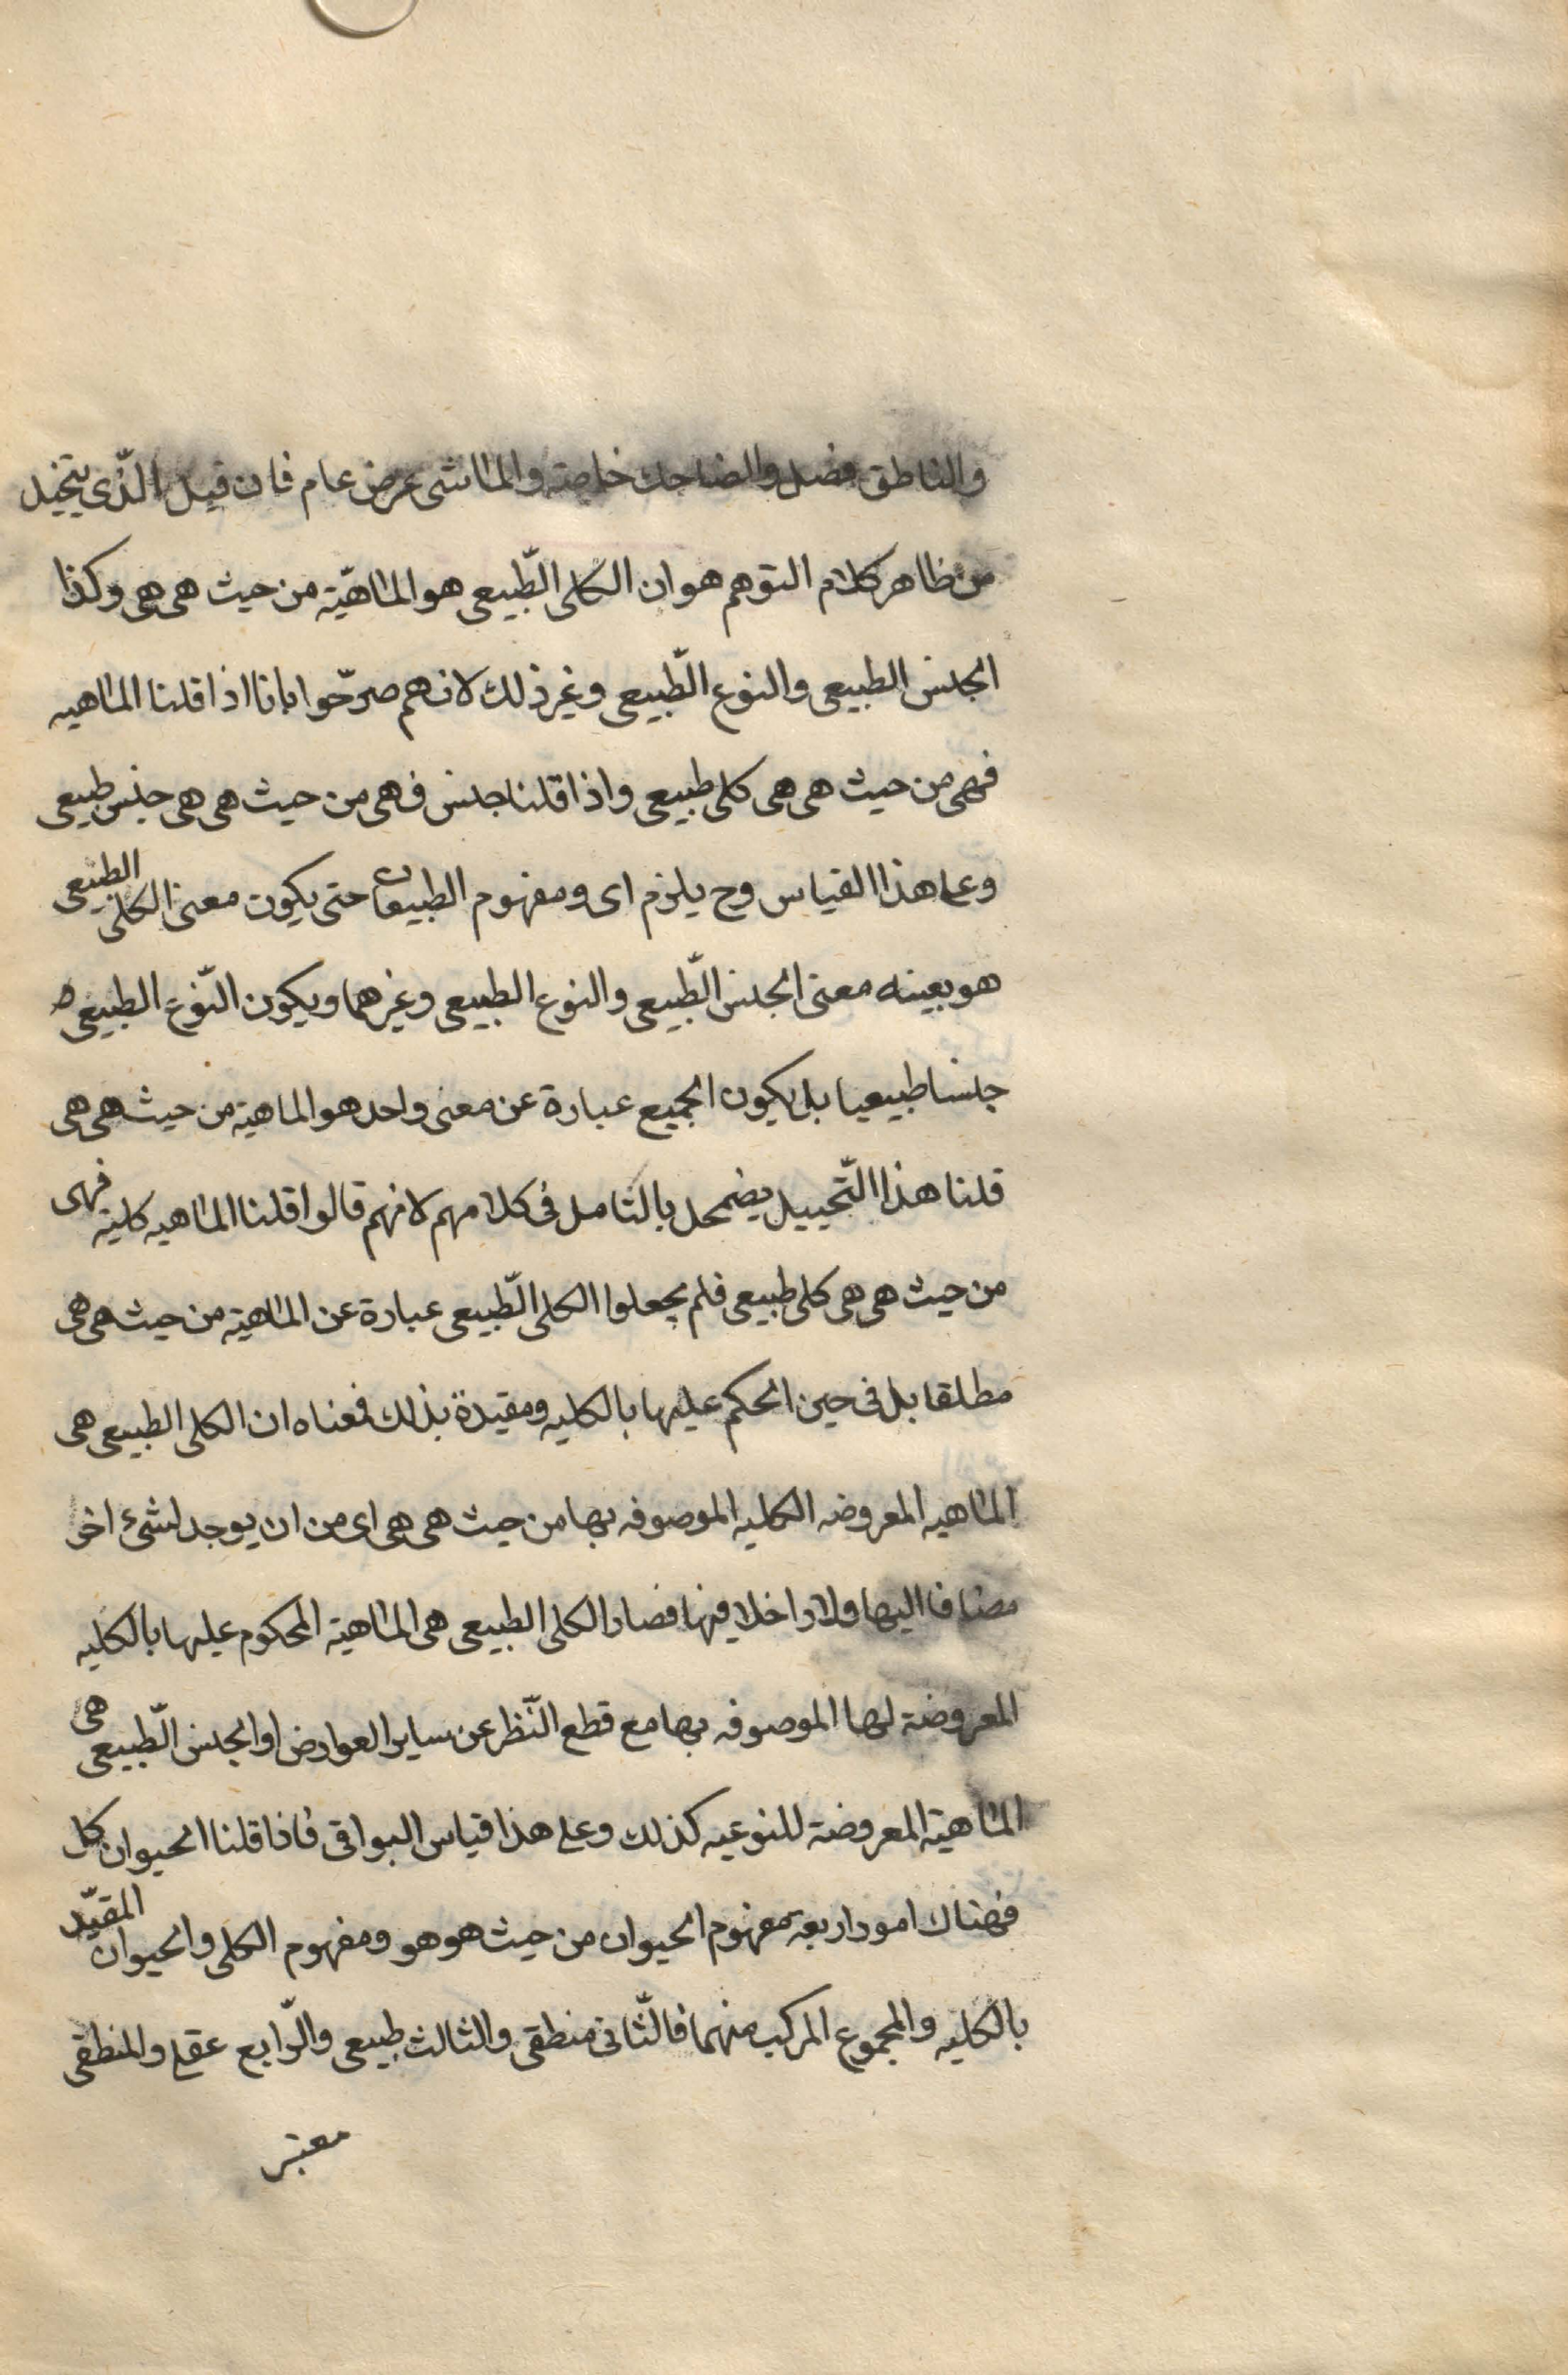 والناطق فصل والضاحك خاصة والماشى عرض عام فان قيل الّذى يتخيل
من ظاهر كلام التوهم هو ان الكلى الطّبيعى هو الماهيّة من حيث هى هى وكذا
الجنس الطبيعى والنوع الطّبيعى وغير ذلك لانهم صرّحوا بانا اذا قلنا الماهيه
فهى من حيث هى هى كلى طبيعى واذا قلنا جنس فهى من حيث هى هى جنس طبيعى
وعلى هذا القياس وح يلزم اى ومفهوم الطبيعات حتى يكون معنى الكلى الطبيعى
هو بعينه معنى الجنس الطّبيعى والنوع الطبيعى وغيرهما ويكون النّوع الطبيعى
جنسا طبيعيا بل يكون الجميع عبارة عن معنى واحد هو الماهية من حيث هى هى
قلنا هذا التّخييل يضمحل بالتامل فى كلامهم لانهم قالوا قلنا الماهيه كلية فهى
من حيث هى هى كلى طبيعى فلم يجعلوا الكلى الطّبيعى عبارة عن الماهية من حيث هى هى
مطلقا بل فى حين الحكم عليها بالكليه ومقيدة بذلك فمعناه ان الكلى الطبيعى هى
الماهيه المعروضه الكليه الموصوفه بها من حيث هى هى اى من ان يوجد لشئ اخر
مضافا اليها ولا داخلا فيها فصار الكلى الطبيعى هى الماهية المحكوم عليها بالكليه
المعروضة لها الموصوفه بها مع قطع النّظر عن ساير العوارض او الجنس الطّبيعى هى
الماهية المعروضة للنوعيه كذلك وعلى هذا قياس البواقى فاذا قلنا الحيوان كل
فهناك امور اربعة مفهوم الحيوان من حيث هو هو ومفهوم الكلى والحيوان المقيّد
بالكليه والمجموع المركب منهما فالثّانى منطقى والثالث طبيعى والرّابع عقلى والمنطقى
معتبر